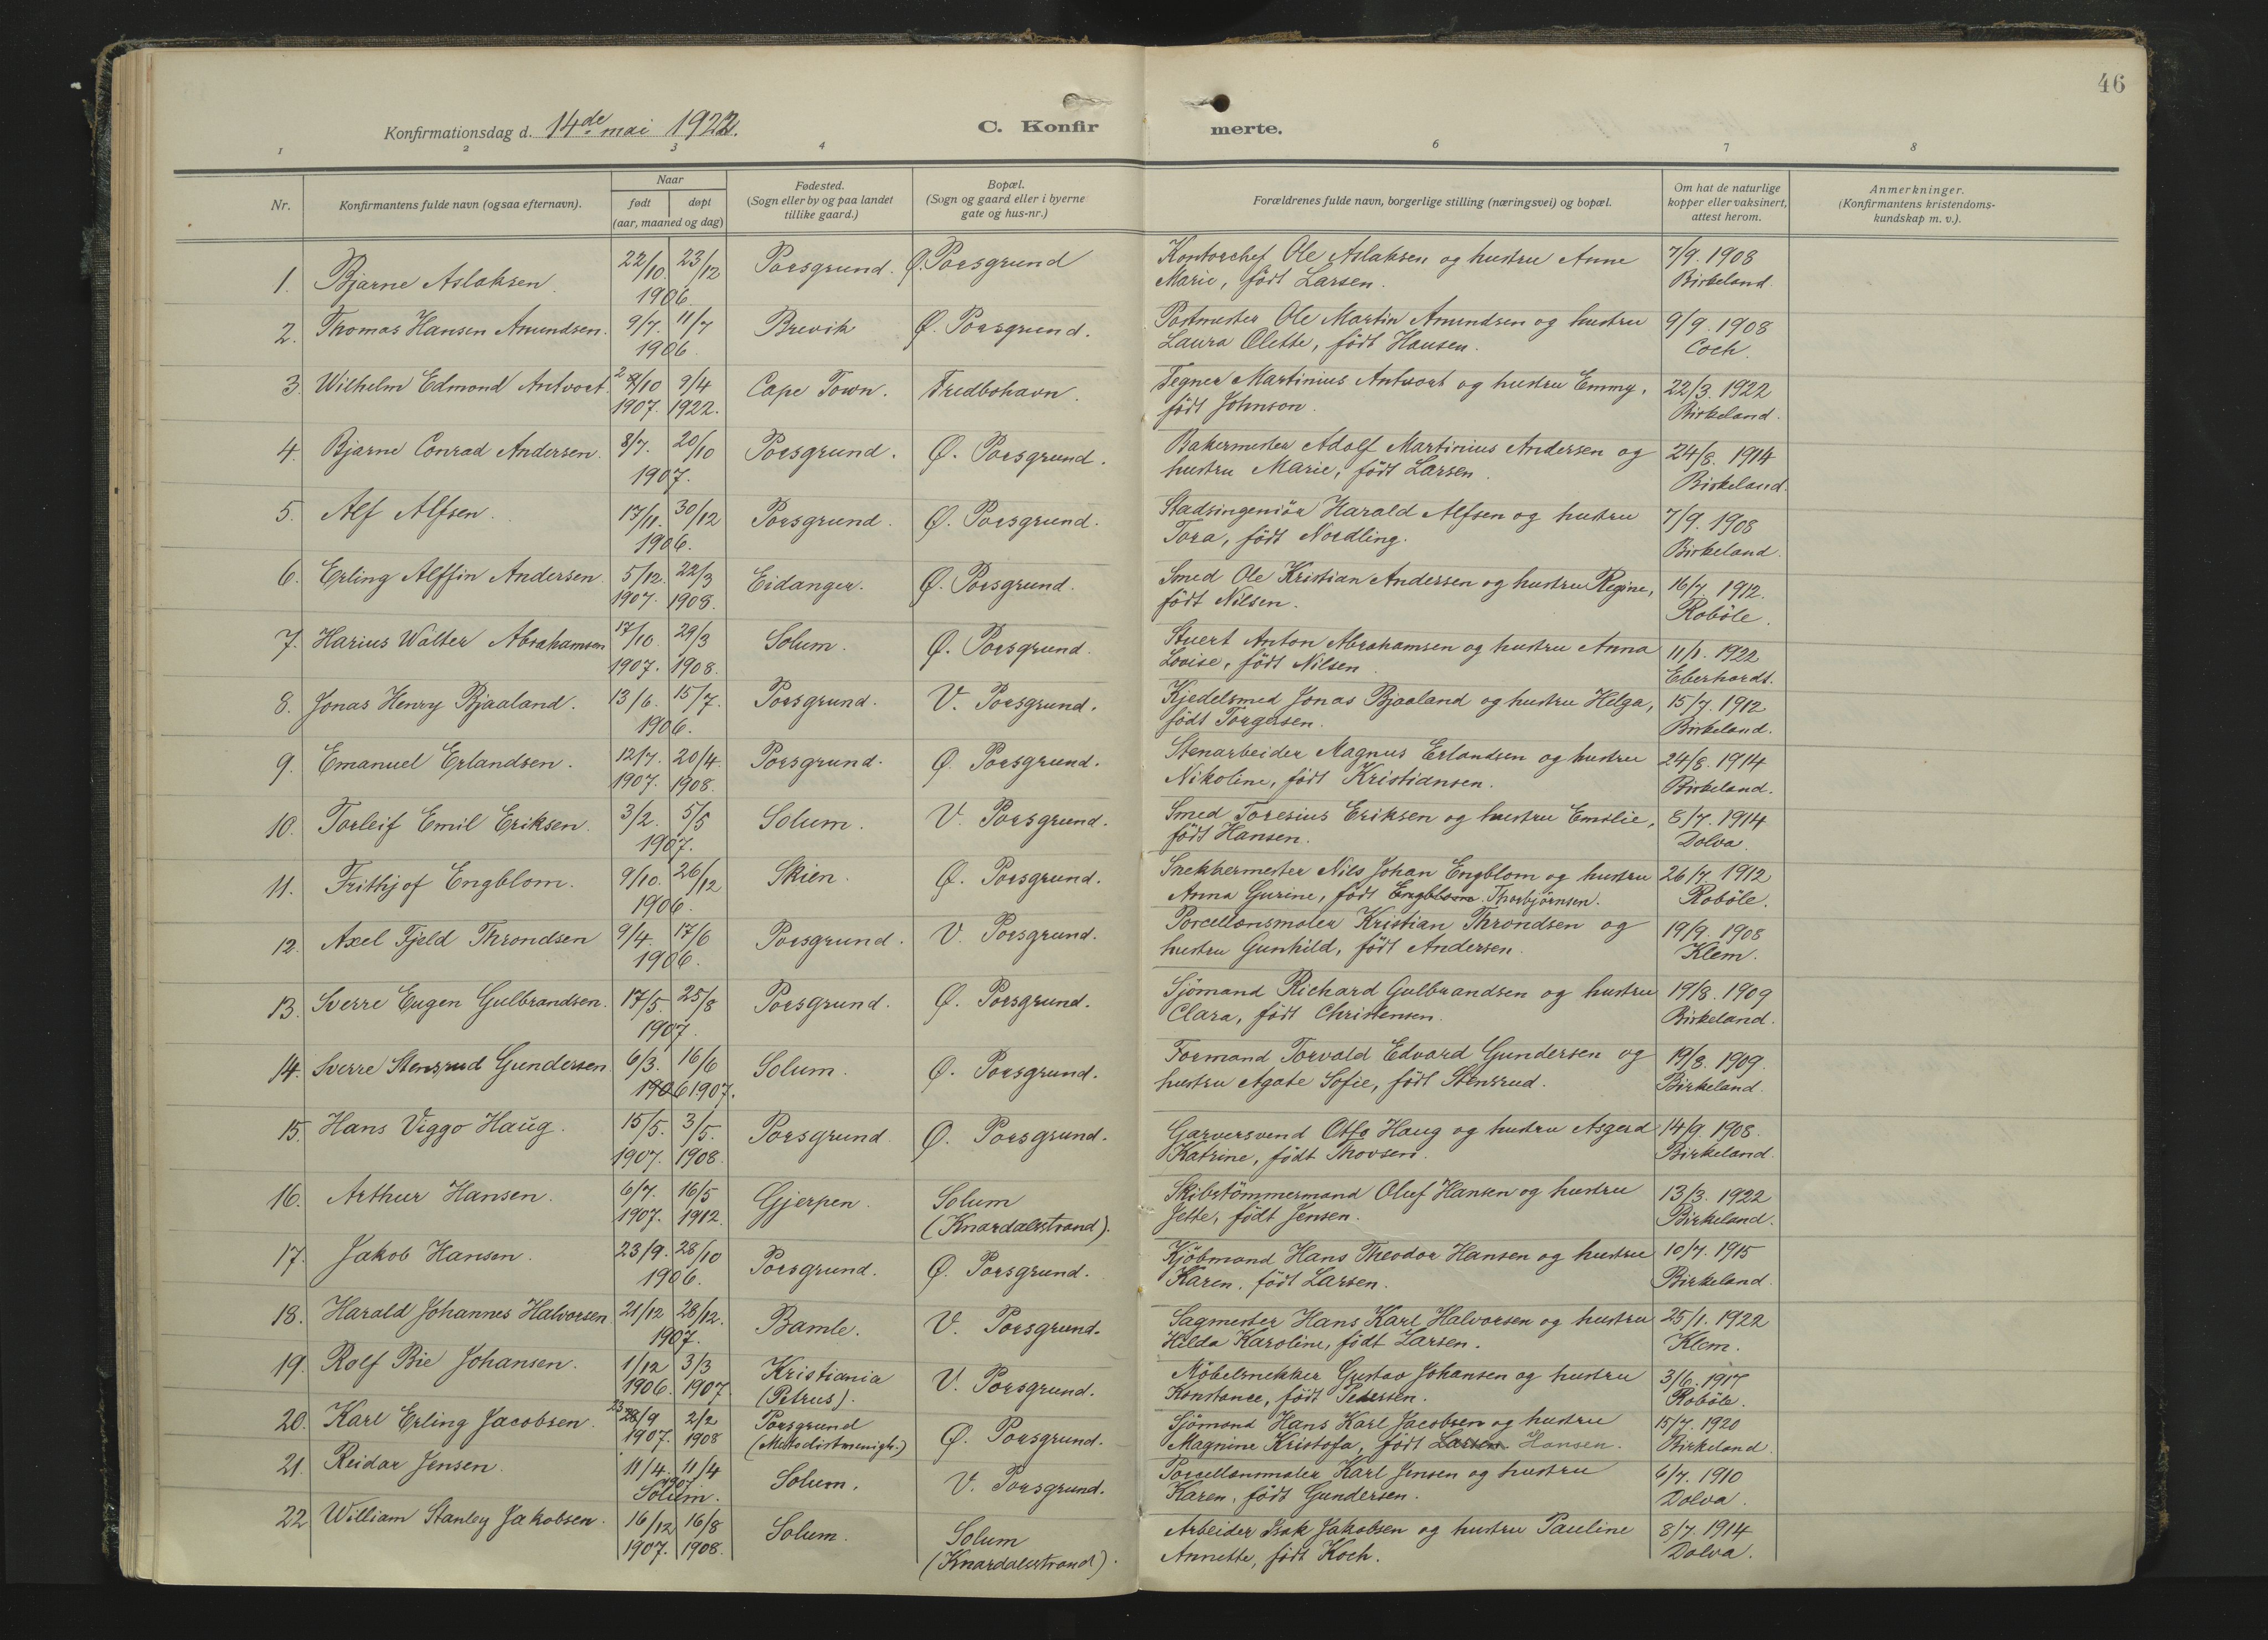 46
Konfirmationsdag d. 14de mai 1922.
C. Konfir
merte.
1 2 3 4 6 7 8
Nr.
Konfirmantens fulde navn (ogsaa efternavn).
Naar
født døpt
(aar, maaned og dag)
Fødested.
(Sogn eller by og paa landet
tillike gaard.)
Bopæl.
(Sogn og gaard eller i byerne
gate og hus-nr.)
Forældrenes fulde navn, borgerlige stilling (næringsvei) og bopæl.
Om hat de naturlige
kopper eller vaksinert,
attest herom.
Anmerkninger.
(Konfirmantens kristendoms-
kundskap m. v.).
1. Bjarne Aslaksen. 22/10. 23/12 1906. Porsgrund. Ø. Porsgrund
Kontorchef Ole Aslaksen og hustru Anne 7/9. 1908
Marie, født Larsen. Birkeland.
2. Thomas Hansen Amundsen. 9/7. 11/7 1906. Brevik Ø. Porsgrund.
Postmester Ole Martin Amundsen og hustru 9/9. 1908
Laura Olette, født Hansen. Coch.
3. Wilhelm Edmond Antvort. /10 9/4 Cape Town. Fredbohavn.
1907. 1922.
Tegner Martinius Antvort og hustru Emmy, 22/3. 1922
født Johnson. Birkeland.
4. Bjarne Conrad Andersen. 8/7. 20/10 1907. Porsgrund. Ø. Porsgrund.
Bakermester Adolf Martinius Andersen og 24/8. 1914
hustru Marie, født Larsen. Birkeland.
5. Alf Alfsen. 17/11. 30/12 1906. Porsgrund. Ø. Porsgrund.
Stadsingeniör Harald Alfsen og hustru 7/9. 1908
Tora, født Nordling. Birkeland.
6. Erling Alffin Andersen. 5/12. 22/3 Eidanger. Ø. Porsgrund.
1907. 1908.
Smed Ole Kristian Andersen og hustru Regine, 16/7. 1912.
født Nilsen. Roböle.
7. Harius Walter Abrahamsen 17/10. 29/3 Solum. Ø. Porsgrund.
1907. 1908.
Stuert Anton Abrahamsen og hustru Anna 11/1. 1922
Lovise, født Nilsen. Eberhardt.
8. Jonas Henry Bjaaland. 13/6. 15/7. 1906. Porsgrund. V. Porsgrund.
Kjedelsmed Jonas Bjaaland og hustru Helga, 15/7. 1912
født Torgersen. Birkeland.
9. Emanuel Erlandsen. 12/7. 20/4. Porsgrund. Ø. Porsgrund.
1907. 1908.
Stenarbeider Magnus Erlandsen og hustru 24/8. 1914
Nikoline, født Kristiansen. Birkeland.
10. Torleif Emil Eriksen. 3/2. 5/5 1907. Solum. V. Porsgrund.
Smed Toresius Eriksen og hustru Emilie, 8/7. 1914
født Hansen. Dolva.
11. Frithjof Engblom. 9/10. 26/12 1906. Skien. Ø. Porsgrund.
Snekkermester Nils Johan Engblom og hustru 26/7. 1912
Anna Gurine, født Engblom. Thorbjörnsen. Roböle.
12. Axel Fjeld Throndsen 9/4. 17/6 1906. Porsgrund. V. Porsgrund.
Porcellonsmaler Kristian Throndsen og 19/9. 1908
hustru Gunhild, født Andersen. Klem.
13. Sverre Eugen Gulbrandsen. 17/5. 25/8 1907. Porsgrund. Ø. Porsgrund.
Sjömand Richard Gulbrandsen og hustru 19/8. 1909
Clara, født Christensen. Birkeland.
14. Sverre Stensrud Gundersen 6/3. 16/6 Solum. Ø. Porsgrund.
1906 1907.
Formand Torvald Edvard Gundersen og 19/8. 1909.
hustru Agate Sofie, født Stensrud. Birkeland.
15. Hans Viggo Haug. 15/5. 3/5. Porsgrund. Ø. Porsgrund.
1907. 1908.
Garversvend Otto Haug og hustru Asgerd 14/9. 1908.
Katrine, født Thovsen. Birkeland.
16. Arthur Hansen. 6/7. 16/5 Gjerpen. Solum
1907. 1912. (Knardalsstrand).
Skibstömmermand Oluf Hansen og hustru 13/3. 1922
Jette, født Jensen. Birkeland.
17. Jakob Hansen. 23/9. 28/10 1906. Porsgrund. Ø. Porsgrund.
Kjöbmand Hans Theodor Hansen og hustru 10/7. 1915
Karen, født Larsen. Birkeland.
18. Harald Johannes Halvorsen 21/12 28/12. 1907. Bamle. V. Porsgrund.
Sagmester Hans Karl Halvorsen og hustru 25/1. 1922
Hilda Karoline, født Larsen. Klem.
19. Rolf Bie Johansen. 1/12 3/3 Kristiania V. Porsgrund.
1906. 1907 (Petrus).
Möbelsnekker Gustav Johansen og hustru 3/6. 1917
Konstance, født Pedersen. Roböle.
20. Karl Erling Jacobsen. 23 28/9 2/2 Porsgrund Ø. Porsgrund.
1907. 1908 (Metodistmenigh.)
Sjömand Hans Karl Jacobsen og hustru 15/7. 1920
Magnine Kristofa, født Larsen. Hansen. Birkeland.
21. Reidar Jensen. 11/4. 11/4 1907 Solum. Solum. V. Porsgrund.
Porcellanmaler Karl Jensen og hustru 6/7. 1910
Karen, født Gundersen. Dolva.
22 William Stanley Jakobsen. 16/12 16/8 Solum. Solum
1907. 1908. (Knardalsstrand).
Arbeider Isak Jakobsen og hustru Pauline 8/7. 1914
Annette, født Koch. Dolva.